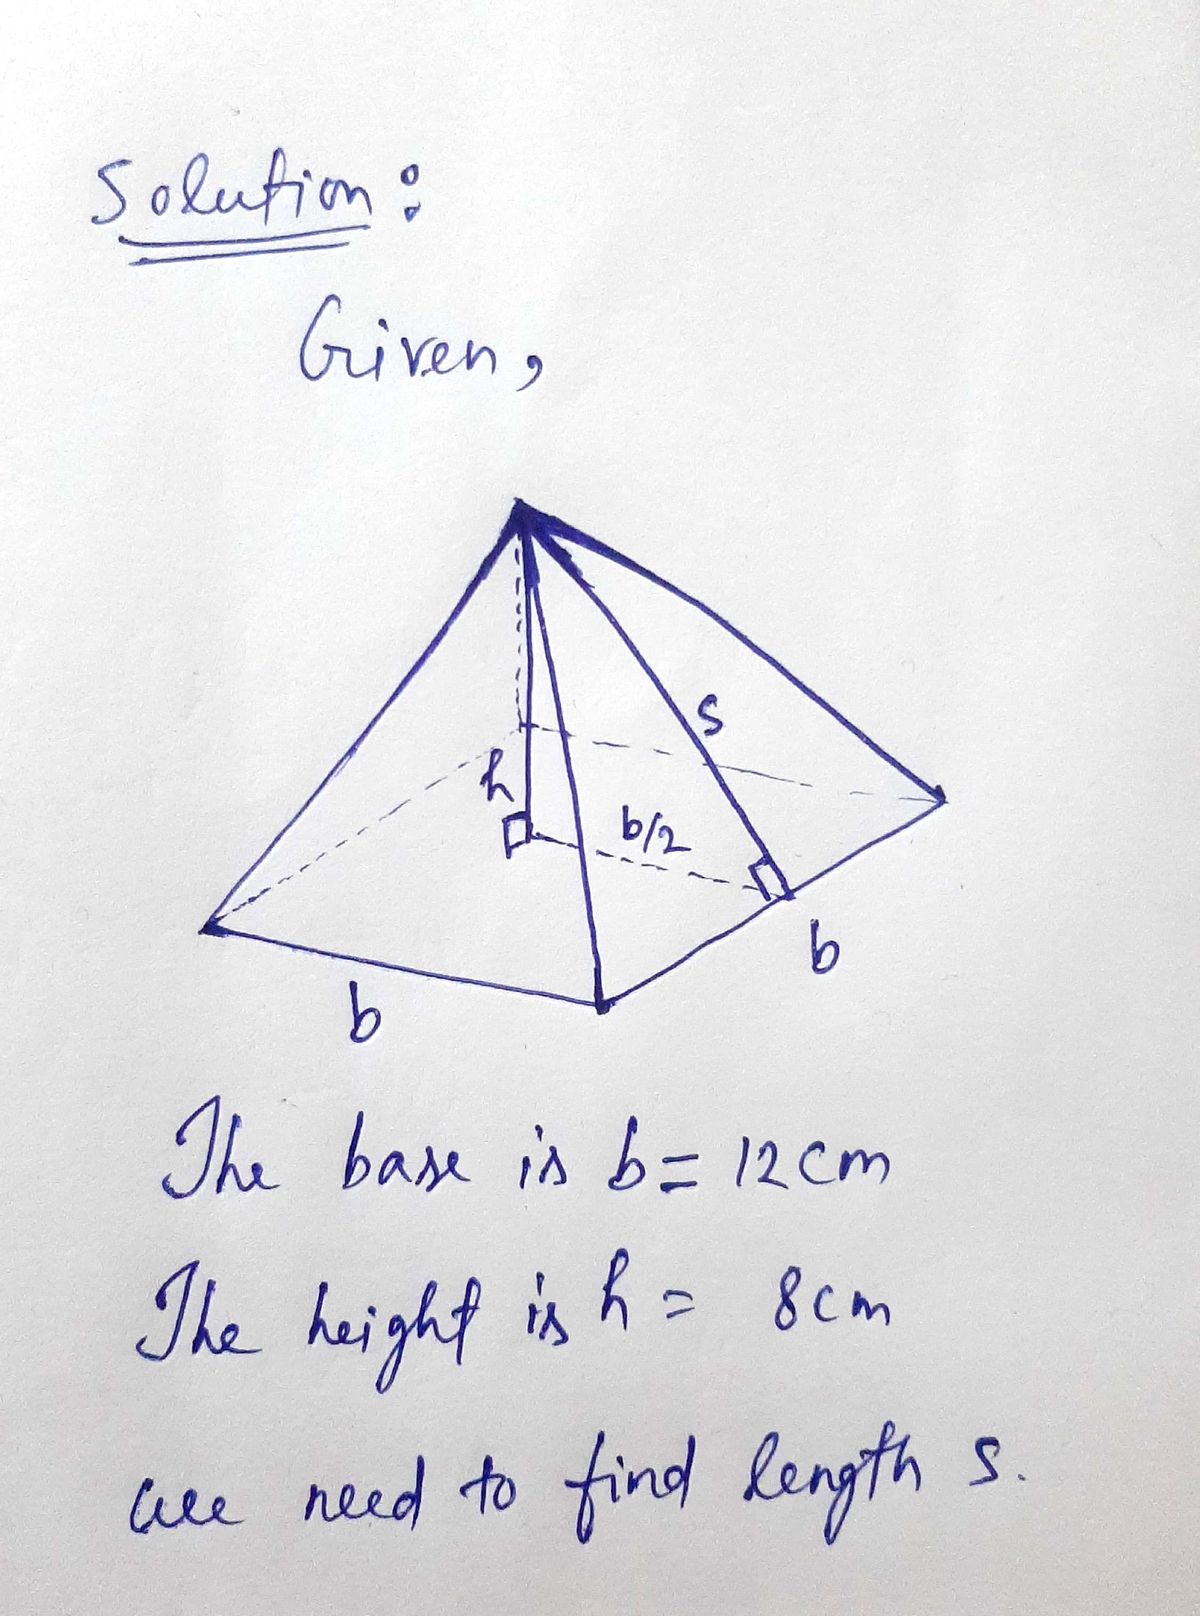 Solution:
Given,
s
h
b/2
b
b
The base is b = 12 cm
The height is h = 8 cm
we need to find length s.